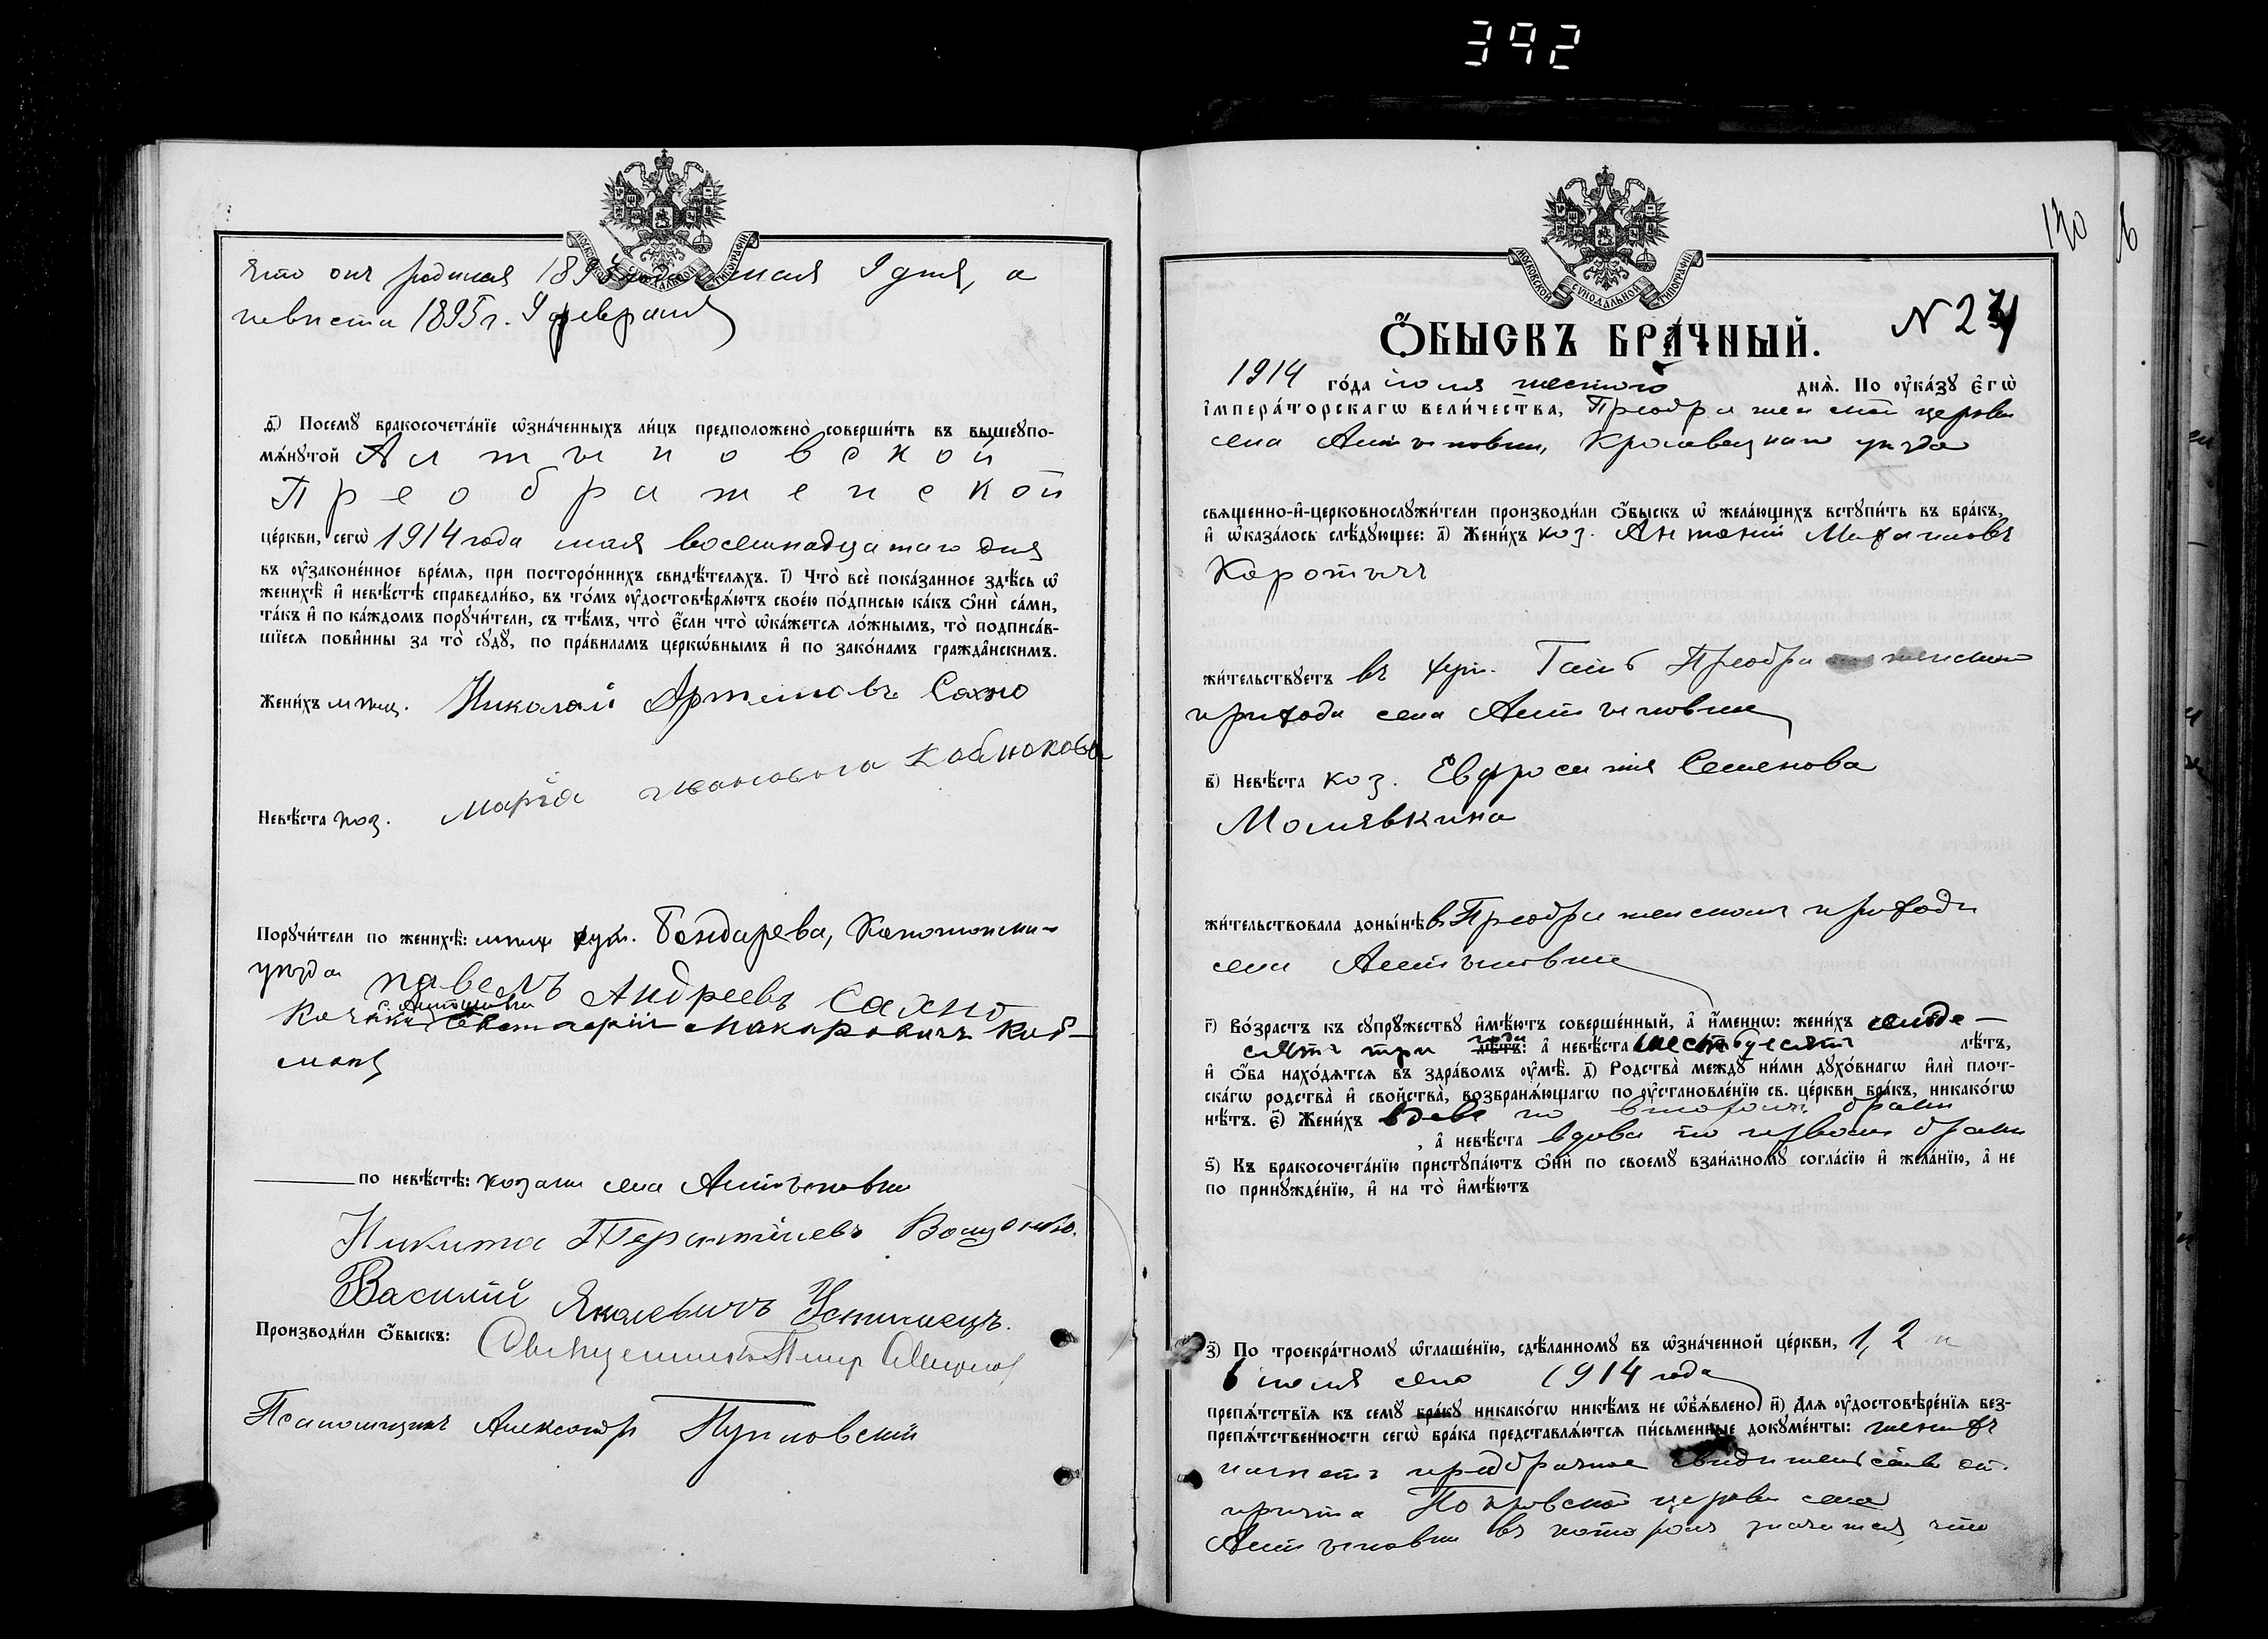 392
МОСКОВСКОЙ СУНОДАЛЬНОЙ ТИПОГРАФІИ
что онъ родился 189 мая 9 дня, а
невеста 1895 г. 9 февраля
д҃) Посемꙋ бракосочетáнїе ѡ҆знáченныхъ ли́цъ предположенò соверши́ть въ вышеꙋпо-
мѧ́нꙋтой Алтыновской
Преображенской
це́ркви, сегѡ̀ 1914 года мая восемнадцатаго дня
въ ᲂу҆законе́нное вре́мѧ, при посторо́ннихъ свидѣ́телѧхъ. і҃) Чтò всѐ пока́занное здѣ́сь ѡ҆
женихѣ̀ и҆ невѣ́стѣ справедли́во, въ то́мъ ᲂу҆достовѣрѧ́ютъ свое́ю по́дписью ка́къ ѻ҆нѝ са́ми,
та́къ и҆ по ка́ждомъ порꙋчи́тели, съ тѣ́мъ, чтò є҆́сли чтò ѡ҆ка́жетсѧ ло́жнымъ, тò подписа́в-
шїесѧ пови́нны за тò сꙋдꙋ̀, по пра́виламъ церкѡ́внымъ и҆ по зако́намъ гражда́нскимъ.
Жени́хъ мѣщ. Николай Артемовъ Сахно
Невѣ́ста коз. Марія Ивановна Коблюкова
Порꙋчи́тели по женихѣ̀: мѣщ. хут. Бондарева, Конотопска
уѣзда Павелъ Андреевъ Сахно
с. Алтыновки
Козакъ Макаровичъ Коб-
по невѣ́стѣ: козаки села Алтыновки
Никита Терентіевъ Вощенко.
Василій Яковлевичъ Устименцъ.
Производи́ли ѻ҆́быскъ: Священникъ Петр
Псаломщикъ Александр Пучковскій
130
МОСКОВСКОЙ СУНОДАЛЬНОЙ ТИПОГРАФІИ
N 24
Ѻ҆́БЫСКЪ БРА́ЧНЫЙ.
1914 го́да іюля шестого днѧ̀. По ᲂу҆ка́зꙋ є҆гѡ̀
і҆мпера́торскагѡ вели́чества, Преображенской церкви
села Алтыновки, Кролевецкаго уезда
свѧще́нно-и҆-церковнослꙋжи́тели производи́ли ѻ҆́быскъ ѡ҆ жела́ющихъ встꙋпи́ть въ бра́къ,
и҆ ѡ҆каза́лось слѣ́дꙋющее: а҃) Жени́хъ коз. Антоній Михаиловъ
Коротычъ
жи́тельствꙋетъ въ хут. Преображенскаго
прихода села Алтыновки
в҃) Невѣ́ста коз. Евфросинія Семенова
Молявкина
жи́тельствовала доны́нѣ въ Преображенскомъ приходѣ
села Алтыновки
г҃) Во́зрастъ къ сꙋпрꙋ́жествꙋ и҆мѣ́ютъ соверше́нный, а҆̀ и҆́меннѡ: жени́хъ семьде-
сятъ три года лѣ́тъ: а҆̀ невѣ́ста шестьдесятъ лѣ́тъ,
и҆ ѻ҆́ба нахо́дѧтсѧ въ здра́вомъ ᲂу҆мѣ̀. д҃) Родства̀ междꙋ̀ ни́ми дꙋхо́внагѡ и҆лѝ плот-
ска́гѡ родства̀ и҆ сво́йства̀, возбранѧ́ющагѡ по ᲂу҆становле́нїю св. це́ркви бра́къ, никако́гѡ
нѣ́тъ. є҃) Жени́хъ вдовъ по второмъ браке
, а҆̀ невѣ́ста вдова по первомъ браке
ѕ҃) Къ бракосочета́нїю пристꙋпа́ютъ ѻ҆нѝ по своемꙋ̀ взаи́мномꙋ согла́сїю и҆ жела́нїю, а҆̀ не
по принꙋжде́нїю, и҆ на тò и҆мѣ́ютъ
з҃) По троекра́тномꙋ ѡ҆глаше́нїю, сдѣ́ланномꙋ въ ѡ҆зна́ченной це́ркви, 1, 2 и
6 іюля сего 1914 года
препѧ́тствїѧ къ семꙋ̀ бра́кꙋ никако́гѡ никѣ́мъ не ѡ҆б̾ѧ́влено. и҃) Длѧ ᲂу҆достовѣре́нїѧ без-
препѧ́тственности сегѡ̀ бра́ка представлѧ́ютсѧ пи́сьменные докꙋме́нты: женихъ
имеетъ предбрачное свидетельство от
причта Покровской церкви села
Алтыновки въ которомъ значится, что